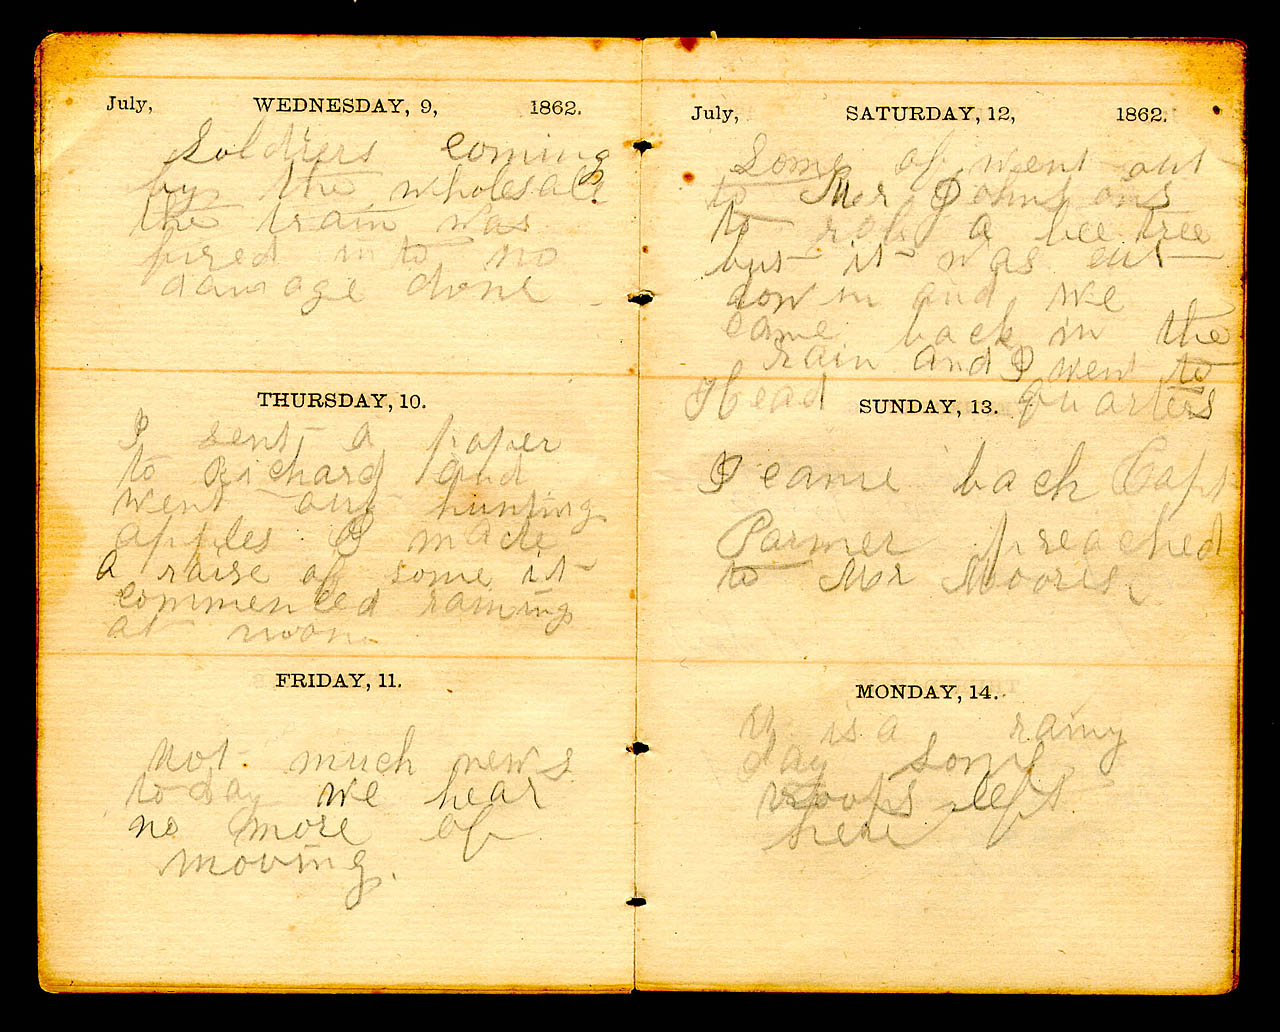 July, WEDNESDAY, 9, 1862.
Soldiers coming
by the wholesale
the train was
fired in to no
damage done
THURSDAY, 10.
I sent a paper
to Richard and
went out hunting
apples I made
a raise of some it
commenced raining
at noon
FRIDAY, 11.
not much news
today we hear
no more of
moving.
July, SATURDAY, 12, 1862.
Some of went out
to Mr Johnsons
to rob a bee tree
but it was cut
down and we
came back in the
rain and I went to
Head quarters
SUNDAY, 13.
I came back Capt
Parmer preached
to Mr Moores
MONDAY, 14.
it is a rainy
day some
troops left
here